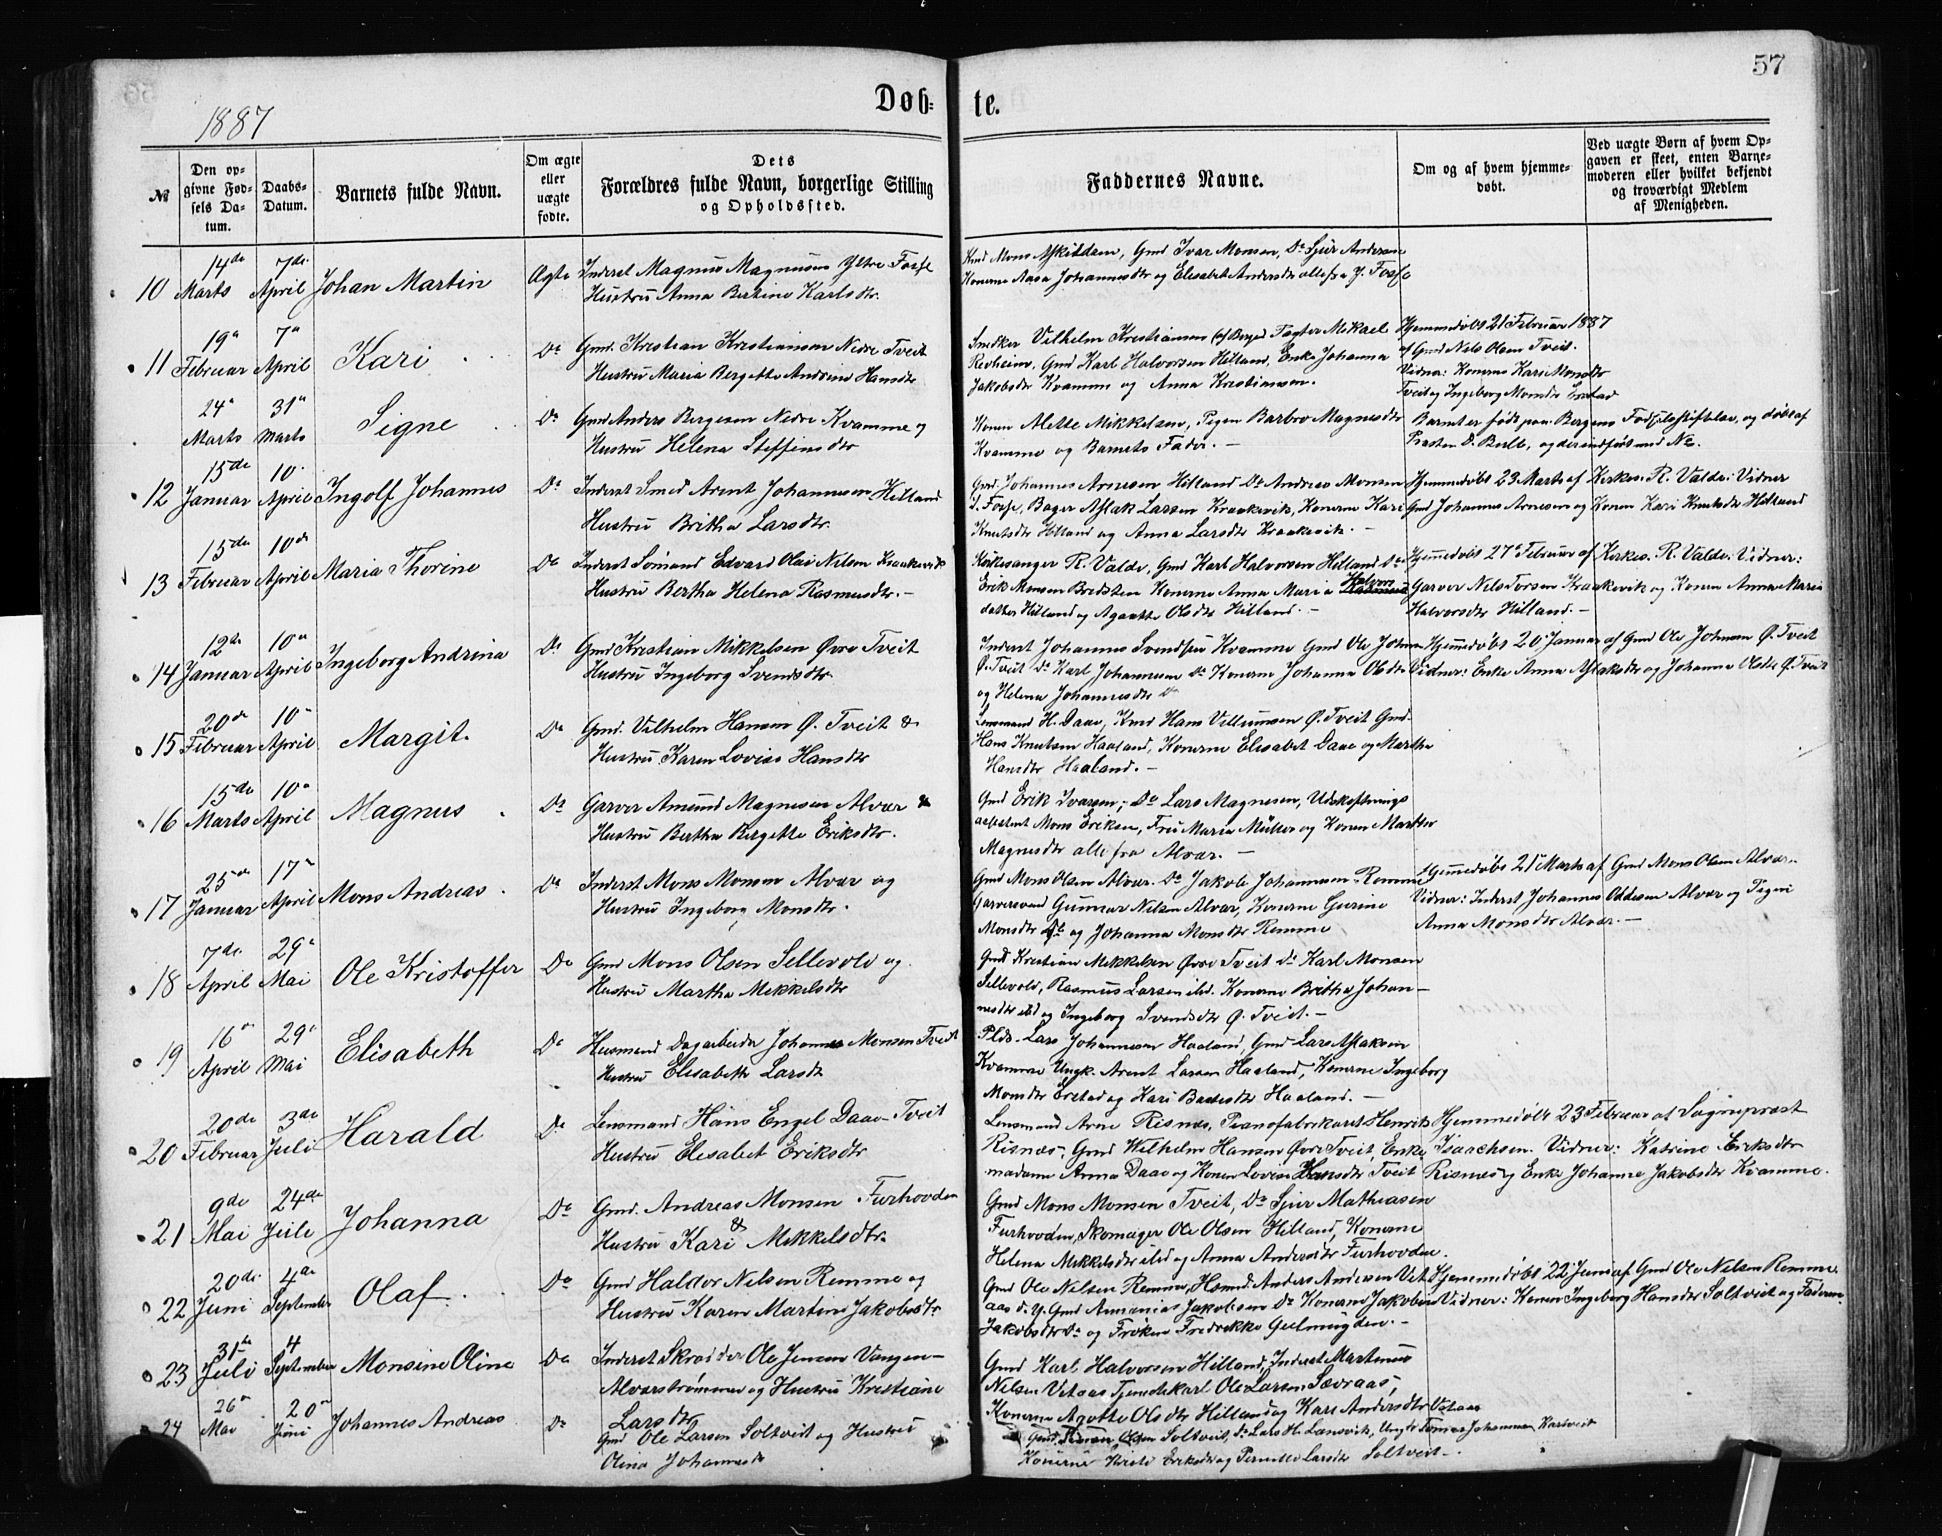 57
1887
Døb- te.
№
Den opgivne Fødsels Datum.
Daabs-Datum.
Barnets fulde Navn.
Om ægte eller uægte fødte.
Dets Forældres fulde Navn, borgerlige Stilling og Opholdssted.
Faddernes Navne.
Om og af hvem hjemmedøbt.
Ved uægte Børn af hvem Opgaven er skeet, enten Barnemoderen eller hvilket bekjendt og troværdigt Medlem af Menigheden.
10 14de Marts 7de April Johan Martin Ægte
Inderst Magnus Magnusen Ytre Fosse
Hustru Anna Bertine Karlsdtr.
Gmd Mons Askildsen, Gmd Ivar Monsen, Do Sjur Andersen
Konerne Aasa Johannesdtr og Elisabet Andersdtr alle fra Y. Fosse
11 19de Februar 7de April Kari Do
Gmd. Kristian Kristiansen Nedre Tveit
Hustru Maria Bergette Andrine Hansdtr
Smedker Vilhelm Kristiansen (af Bergen) Fogter Mikael
Revheim, Gmd Karl Halvorsen Hilland, Enke Johanna
Jakobsdtr Kvamme og Anna Kristiansen.
Hjemmedøbt 21 Februar 1887
af Gmd Nils Olsen Tveit.
Vidner: Konerne Kari Monsdtr
Tveit og Ingeborg Monsdtr Erstad
24de Marts 31te Marts Signe Do
Gmd Anders Bergesen Nedre Kvamme og
Hustru Helena Steffensdtr
Konen Alette Mikkelsen, Pigen Barbro Magnesdtr
Kvamme og Barnets Fader.
Barnet er født paa Bergens Fødselsstiftelse, og døbt af
Præsten D. Bull, og der indført med No.
12 15de Januar 10 April Ingolf Johannes Do
Inderst Smed Arent Johannesen Hilland
Hustru Britha Larsdtr.
Gmd. Johannes Arnesen Hilland Do Andreas Monsen
I. Fosse, Bager Aslak Larsen Kraakevik, Konerne Kari
Knutsdtr Hilland og Anna Larsdtr Kraakevik.
Hjemmedøbt 23 Marts af Kirkes. R. Valde: Vidner
Gmd Johannes Arnesen og Konen Kari Knutsdtr Hilland
13 15de Februar 10de April Maria Thorine Do
Inderst Sømand Edvard Olai Nilsen Kraakevik
Hustru Bertha Helena Rasmusdtr.
Kirkesanger R. Valde, Gmd Karl Halvorsen Hilland Do
Erik Monsen Bredsten Konerne Anna Maria Halvors
datter Hilland og Agaatte Olsdtr Hilland.
Hjemmedøbt 27de Februar af Kirkes. R. Valde: Vidner:
Garver Nils Torsen Kraakevik og Konen Anna Maria
Halvorsdtr Hilland.
14 12te Januar 10de April Ingeborg Andrina Do
Gmd Kristian Mikkelsen Øvre Tveit
Hustru Ingeborg Svendsdtr.
Inderst Johannes Svendsen Kvamme Gmd Ole Johnsen
Ø. Tveit Do Karl Johannesen Do Konerne Johanna Olsdtr
og Helena Johannesdtr Do
Hjemmedøbt 20 Januar af Gmd Ole Johnsen Ø. Tveit
Vidner: Enke Anna Aslaksdtr og Johanna Olsdtr Ø. Tveit
15 20de Februar 10de April Margit. Do
Gmd. Vilhelm Hansen Ø. Tveit &
Hustru Karen Lovise Hansdtr
Lensmand H. Daae, Kmd Hans Villumsen Ø. Tveit Gmd.
Hans Knutsen Haaland, Konerne Elisabet Daae og Martha
Hansdtr Haaland.
16 15de Marts 10de April Magnus Do
Garver Amund Magnesen Alvær &
Hustru Bertha Bergette Eriksdtr.
Gmd Erik Ivarsen, Do Lars Magnesen, Udskiftnings
assistent Mons Eriksen, Fru Maria Müller og Konen Martha
Magnesdtr alle fra Alvær.
17 25de Januar 17de April Mons Andreas Do
Inderst Mons Monsen Alvær og
Hustru Ingeborg Monsdtr.
Gmd Mons Olsen Alvær. Do Jakob Johannesen Remme
Garversvend Gunnar Nilsen Alvær, Konerne Gurine
Monsdtr Do og Johanna Monsdtr Remme
Hjemmedøbt 21de Marts af Gmd Mons Olsen Alvær.
Vidner: Inderst Johannes Oddesen Alvær og Pigen
Anna Monsdtr Alvær.
18 7de April 29de Mai Ole Kristoffer Do
Gmd Mons Olsen Sellevold og
Hustru Martha Mikkelsdtr
Gmd Kristian Mikkelsen Øvre Tveit Do Karl Monsen
Sellevold, Rasmus Larsen ibd. Konerne Britha Johan-
nesdtr ibd og Ingeborg Svendsdtr Ø. Tveit.
19 16de April 29de Mai Elisabeth Do
Husmand Dagarbeider Johannes Monsen Tveit
Hustru Elisabeth Larsdtr
Plds. Lars Johannesen Haaland, Gmd Lars Aslaksen
Kvamme Ungk. Arent Larsen Haaland, Konerne Ingeborg
Monsdtr Erstad og Kari Baardsdtr Haaland.
20 20de Februar 3de Juli Harald Do
Lensmand Hans Engel Daae Tveit
Hustru Elisabet Eriksdtr
Lensmand Arne Risnes, Pianofabrikant Henrik
Risnes, Gmd Wilhelm Hansen Øvre Tveit, Enke
madame Anna Daae og Konen Lovise Hansdtr Tveit
Hjemmedøbt 23 Februar af Sogneprest
Isaachsen. Vidner: Katrine Eriksdtr
Risnes og Enke Johanne Jakobsdtr Kvamme.
21 9de Mai 24de Juli Johanna Do
Gmd. Andreas Monsen Furhovden
& Hustru Kari Mikkelsdtr.
Gmd Mons Monsen Tveit, Do Sjur Mathiasen
Furhovden, Skomager Ole Olsen Hilland, Konerne
Helena Mikkelsdtr ibd og Anna Andersdtr Furhovden.
22 20de Juni 4de September Olaf. Do
Gmd Haldor Nilsen Remme og
Hustru Karen Martine Jakobsdtr.
Gmd Ole Nilsen Remme, Husmd Anders Andersen Vet
aas Do Y. Gmd Ananias Jakobsen Do Konerne Jakobine
Jakobsdtr Do og Frøken Fredrikke Geelmuyden.
Hjemmedøbt 22 Juni af Gmd Ole Nilsen Remme
Vidner: Konen Ingeborg Hansdtr Soltveit og Faderen.
23 31te Juli 4 September Monsine Oline Do
Inderst Skrædder Ole Jensen Vangen
Alverstrømmen og Hustru Kristiane
Larsdtr
Gmd Karl Halvorsen Hilland, Inderst Martinus
Nilsen Vetaas Tjenestekarl Ole Larsen Sævraas,
Konerne Agotte Olsdtr Hilland og Kari Andersdtr Vetaas
24 26de Mai 20de Juni Johannes Andreas Do
Gmd Ole Larsen Soltveit og Hustru
Olina Johannesdtr
Olsen Soltveit, Do Lars H. Lanevik, Ungk Tomas Johannesen Karlsvit
Konerne Kirsti Eriksdtr og Pernille Larsdtr Soltveit